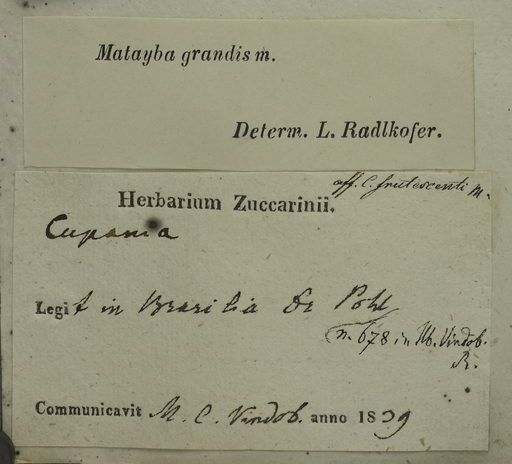 Matayba grandis m.
Determ. L. Radlkofer.
aff. C. frutescenti m.
Herbarium Zuccarinii.
Cupania
Legit in Brasilia Dr Pohl
(n. 678 in Hb. Vindob.
R.
Communicavit M. C. Vindob. anno 1839